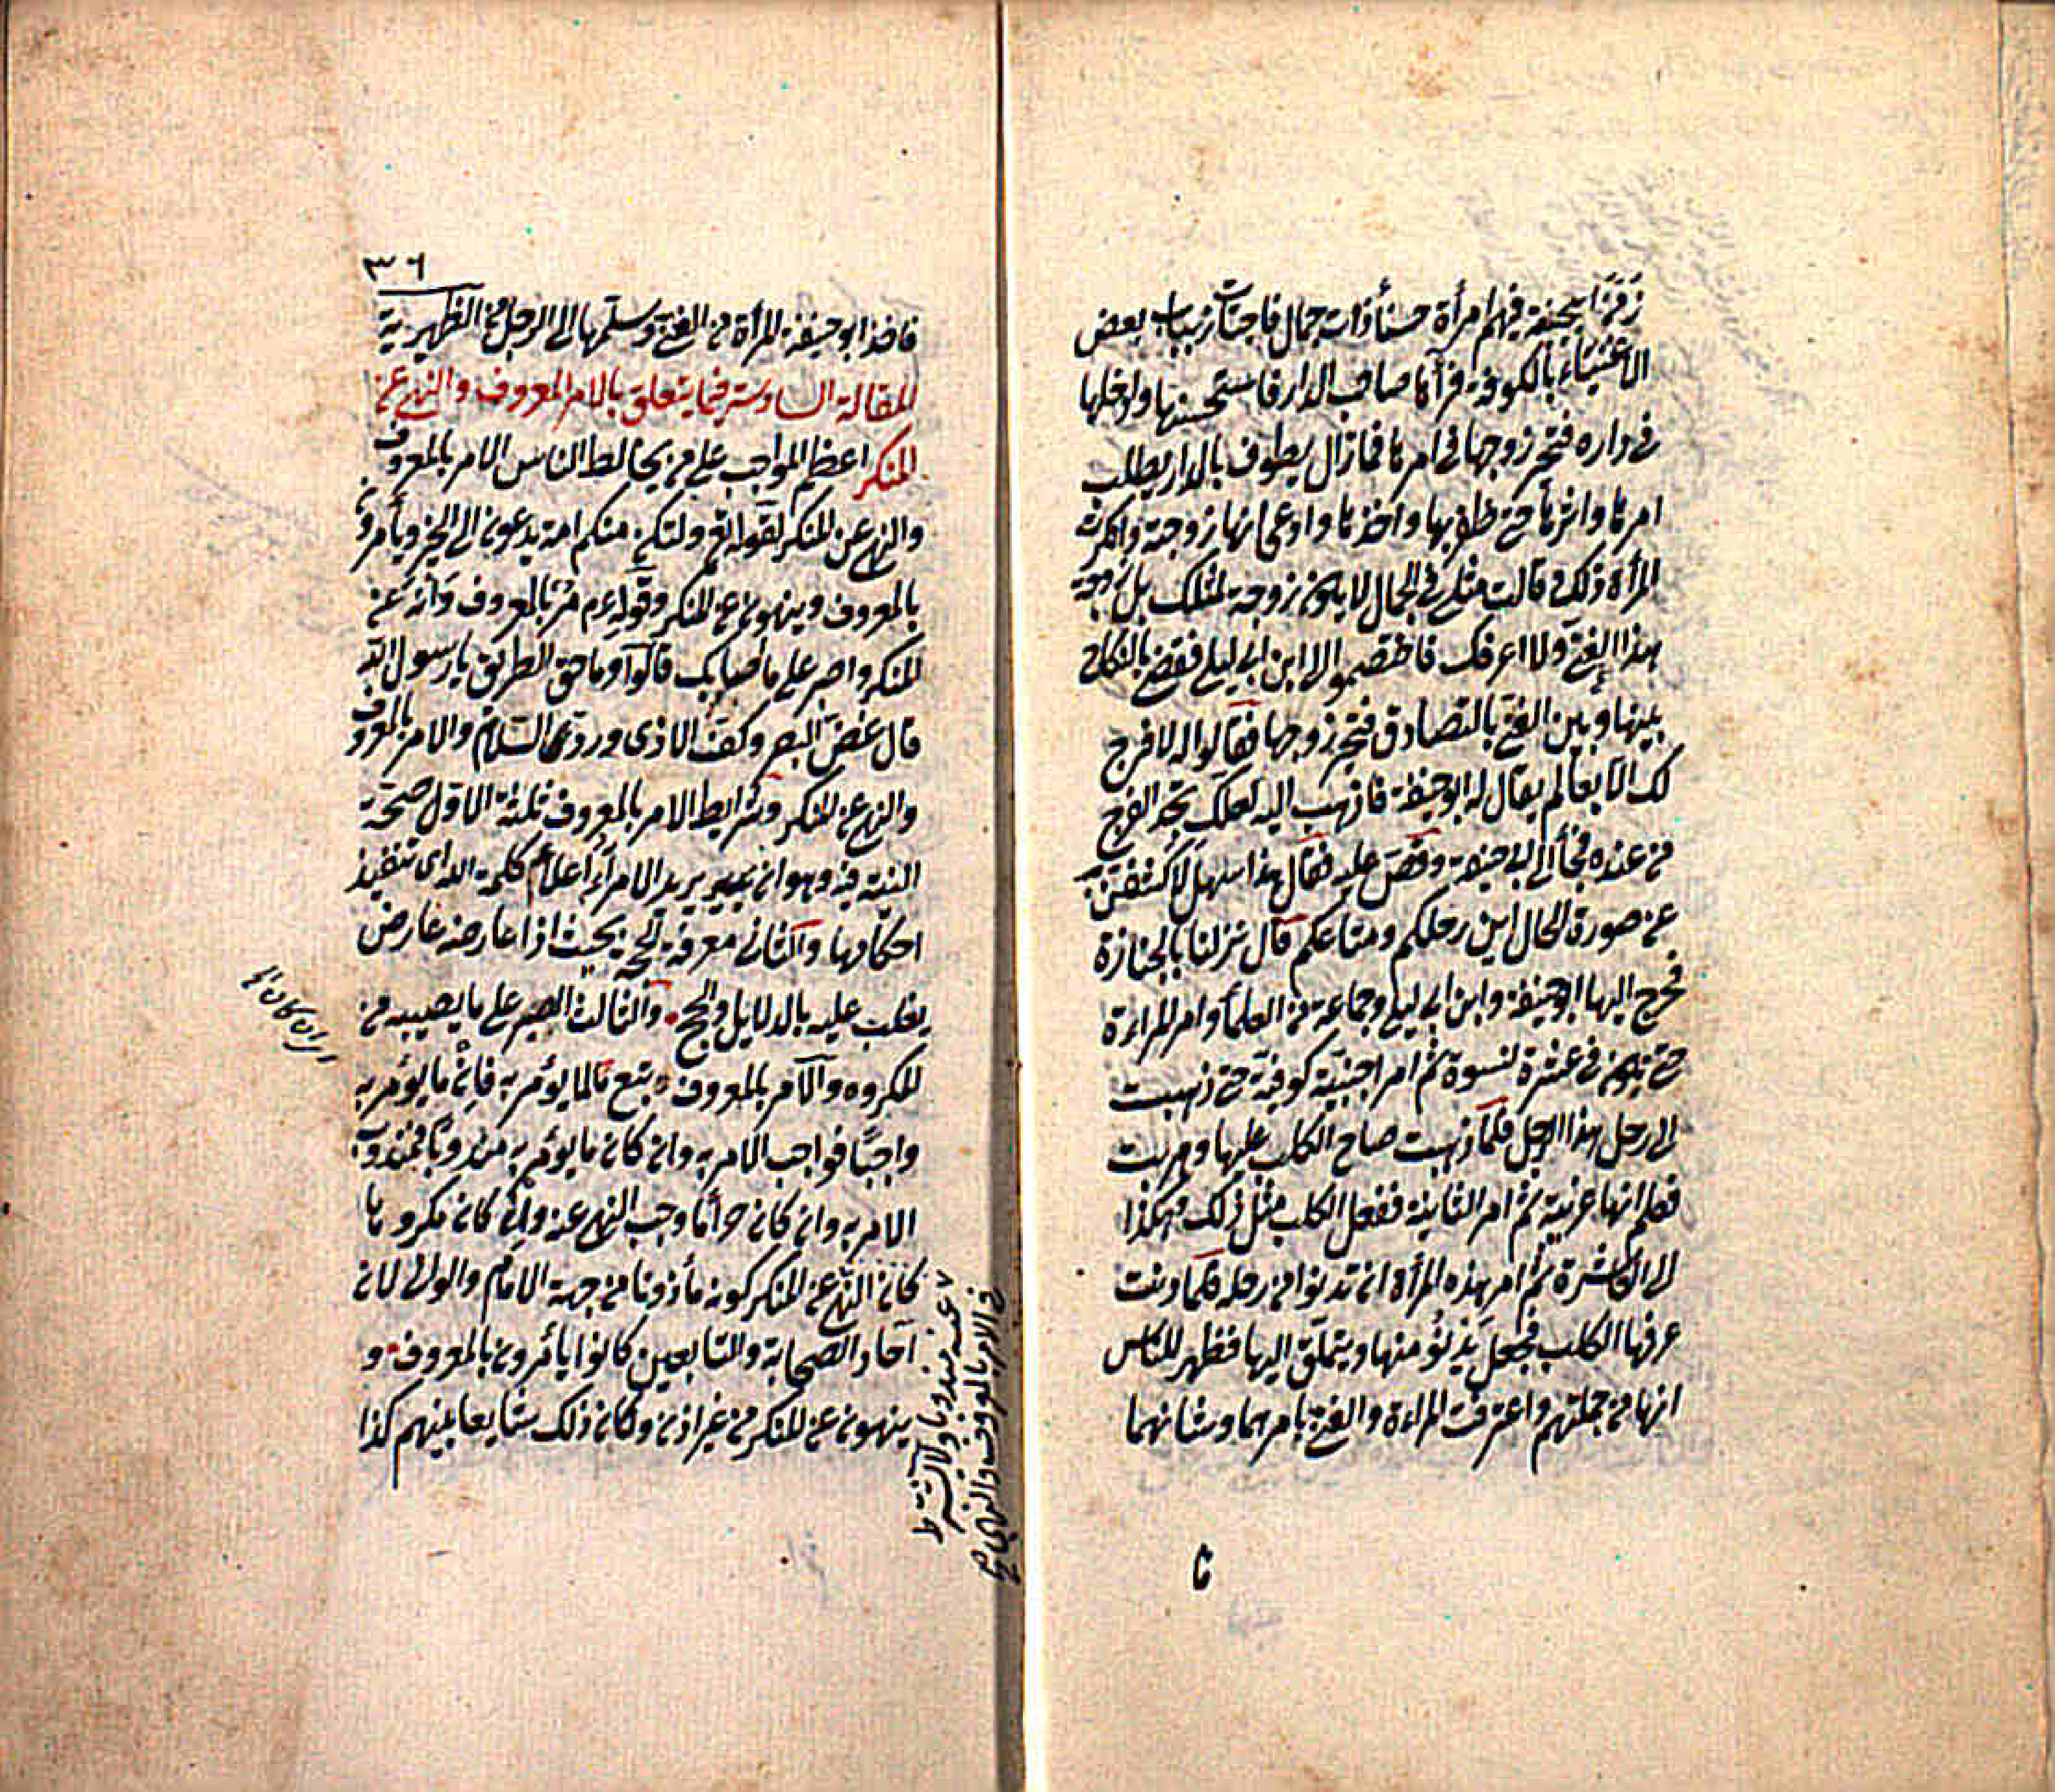 زمن ابي حنيفة فيهم امرأة حسنأ ذات جمال فاجتازت بباب بعض
الاغنياء بالكوفة فرآها صاحب الدار فاستحسنها وادخلها
فى داره فتحير زوجها فى امرها فمازال يطوف بالدار يطلب
امرها واثرها حتى ظفر بها واخذها وادعى انها زوجته وانكرت
المرأة ذلك وقالت مثلى فى الجمال لا يكون زوجة لمثلك بل زوجة
بهذا الفتى ولا اعرفك فاختصموا الى ابن ابى ليلى فقضى بالنكاح
بينها وبين الفتى بالتصادق فتحير زوجها فقالوا له لا فرج
لك الا بعالم يقال له ابو حنيفة فاذهب اليه لعلك تجد الفرج
من عنده فجأ الى ابى حنيفة وقصّ عليه فقال هذا سهل لأكشفنّ
عن صورة الحال اين رحلكم ومتاعكم قال نزلنا بالجنازة
فخرج اليها ابو حنيفة وابن ابى ليلى وجماعة من العلمأ وامر المراءة
حتى تكون فى عشرة نسوة ثم امر اجنبيّة كوفيّة حتى ذهبت
الى رحل هذا الرجل فلما ذهبت صاح الكلب عليها وهربت
فعلم انها غريبة ثم امر الثانية ففعل الكلب مثل ذلك وهكذا
الى العاشرة ثم امر هذه المرأة ان تدنوا من رحله فلما دنت
عرفها الكلب فجعل يدنو منها ويتملّق اليها فظهر للناس
انها من جملتهم واعترفت المراءة والفتى بامرهما وشانهما
فا
٣٦
فاخذ ابو حنيفة المرأة من الفتى وسلمها الى الرجل من الظهيرية
المقالة السادسة فيما يتعلق بالامر المعروف والنهى عن
المنكر اعظم المواجب على من يخالط الناس الامر بالمعروف
والنهى عن المنكر لقوله تع ولتكن منكم امة يدعون الى الخير ويأمرون
بالمعروف وينهون عن المنكر وقوله عم مر بالمعروف وانه عن
المنكر واصبر على ما اصابك قالوا وما حق الطريق يا رسول الله
قال غضّ البصر وكفّ الاذى وردّ السّلام والامر بالمعروف
والنهى عن المنكر وشرايط الامر بالمعروف ثلثة الاوّل صحّة
النية فيه وهو ان يريد الامر اعلاء كلمة الله اى تنفيذ
احكامها والثانى معرفة الحجة بحيث اذا عارضه عارض
يغلب عليه بالدلايل والحجج والثالث الصبر على ما يصيبه من
المكروه والآمر بالمعروف يتبع لما يؤمر به فان ما يؤمر به
واجبًا فواجب الامر به وان كان ما يؤمر به مندوبًا فمندوب
الامر به وان كان حرأمًا وجب النهى عنه وان كان مكروها
كان النهى عن المنكر كونه مأذونا من جهة الامام والوالى لان
آحاد الصحابة والتابعين كانوا يأمرون بالمعروف و
ينهون عن المنكر من غير اذن وكان ذلك شايعا بينهم كذا
عنه مندوبا ولا يشترط
فى الامر بالمعروف والنهى صح